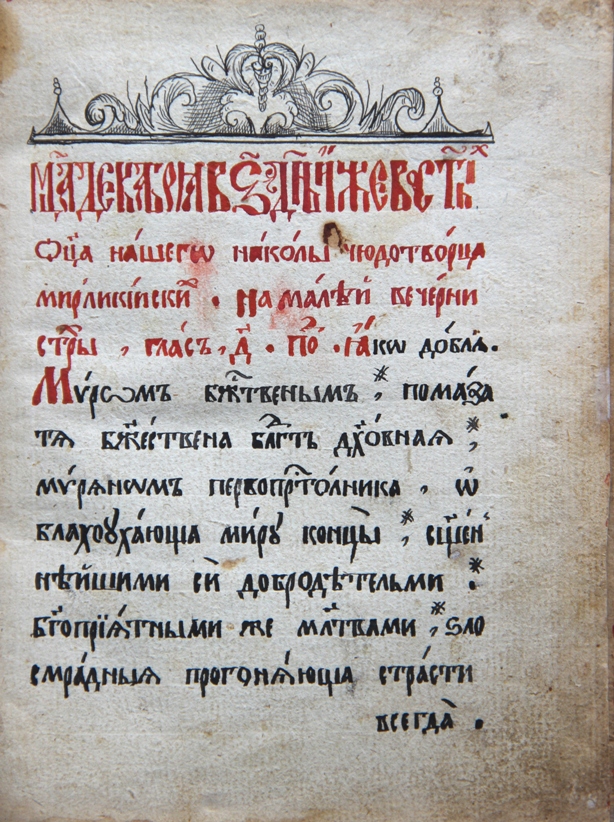 мⷭ҇ца декаврїа в ѕ҃ дн҃ь и҆́же во ст҃ы́хъ
Ѻц҃а на́шегѡ нако́лы чюдотво́рца
мирлики́искїи . на ма́лѣй вече́рни
стр҃ы , гла́съ , д҃ . по̑ . ꙗ҆́кѡ до́блѧ .
Мѵ́рѡмъ бж҃твенымъ ⁎ , пома́за
тѧ бж҃е́ствена бл҃гть дх҃о́внаѧ ⁎ ,
мѵ́рѧномъ первопрⷭ҇то́лника , ѡ҆
благоуха́юща ми́ру концы̀ ⁎ , сщ҃е́н
нѣ́йшими сѝ добродѣ́тельми ⁎ .
бг҃опрїѧ́тными же мл҃твами ⁎ , ѕло
смра́дныѧ прогонѧ́юща стра́сти
всегда̀ .